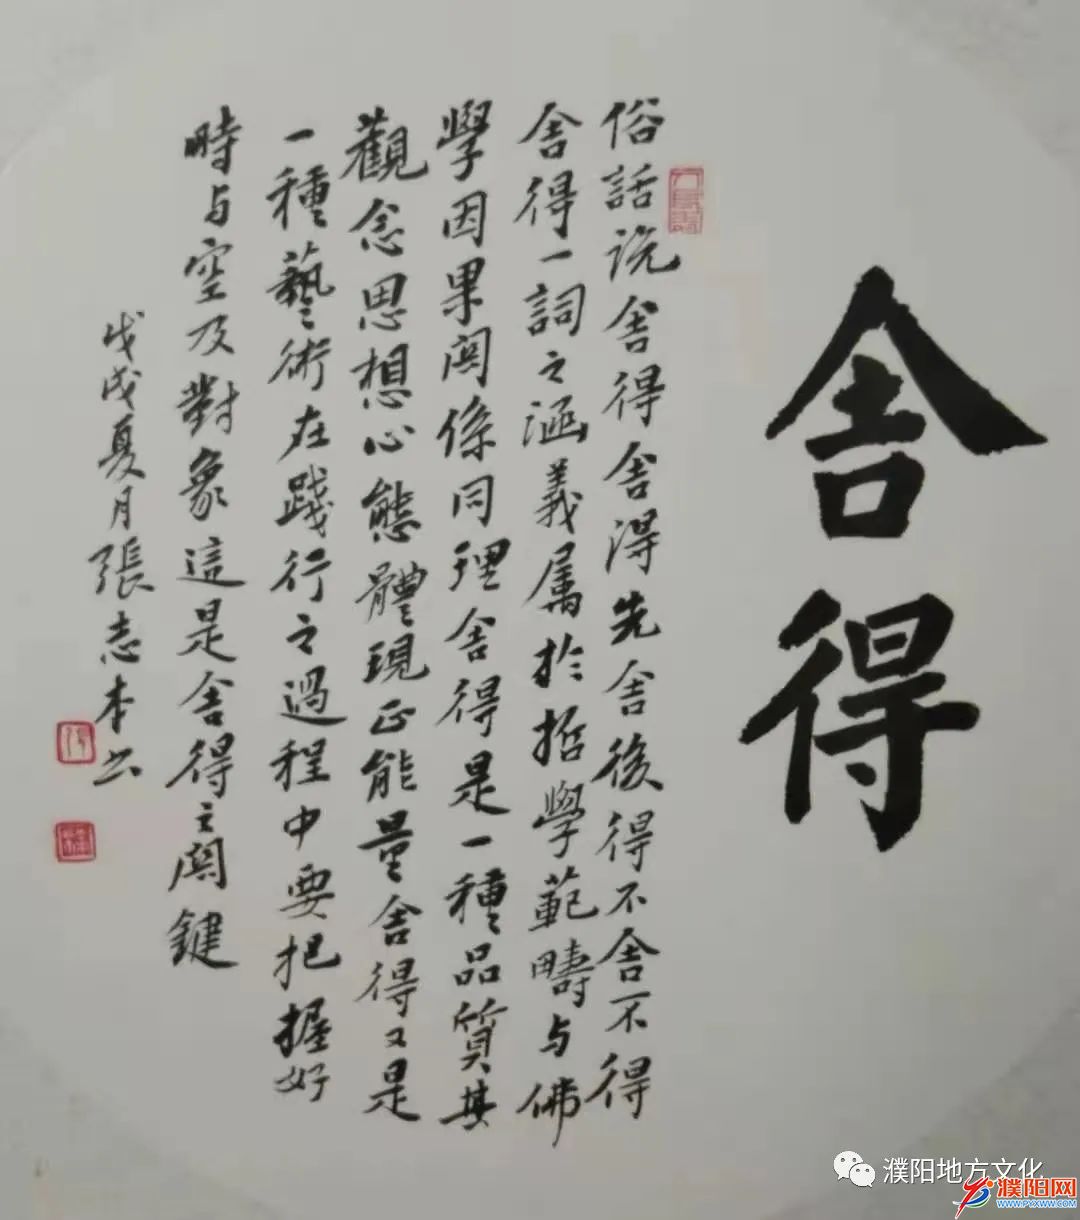 舍得
俗話说舍得舍得先舍後得不舍不得
舍得一詞之涵義属於哲學範疇与佛
學因果関係同理舍得是一種品質其
觀念思想心態體現正能量舍得又是
一種藝術在踐行之過程中要把握好
時与空及對象這是舍得之関鍵
戊戌夏月張志本书
濮阳地方文化
濮阳网
WWW.PYXWW.COM